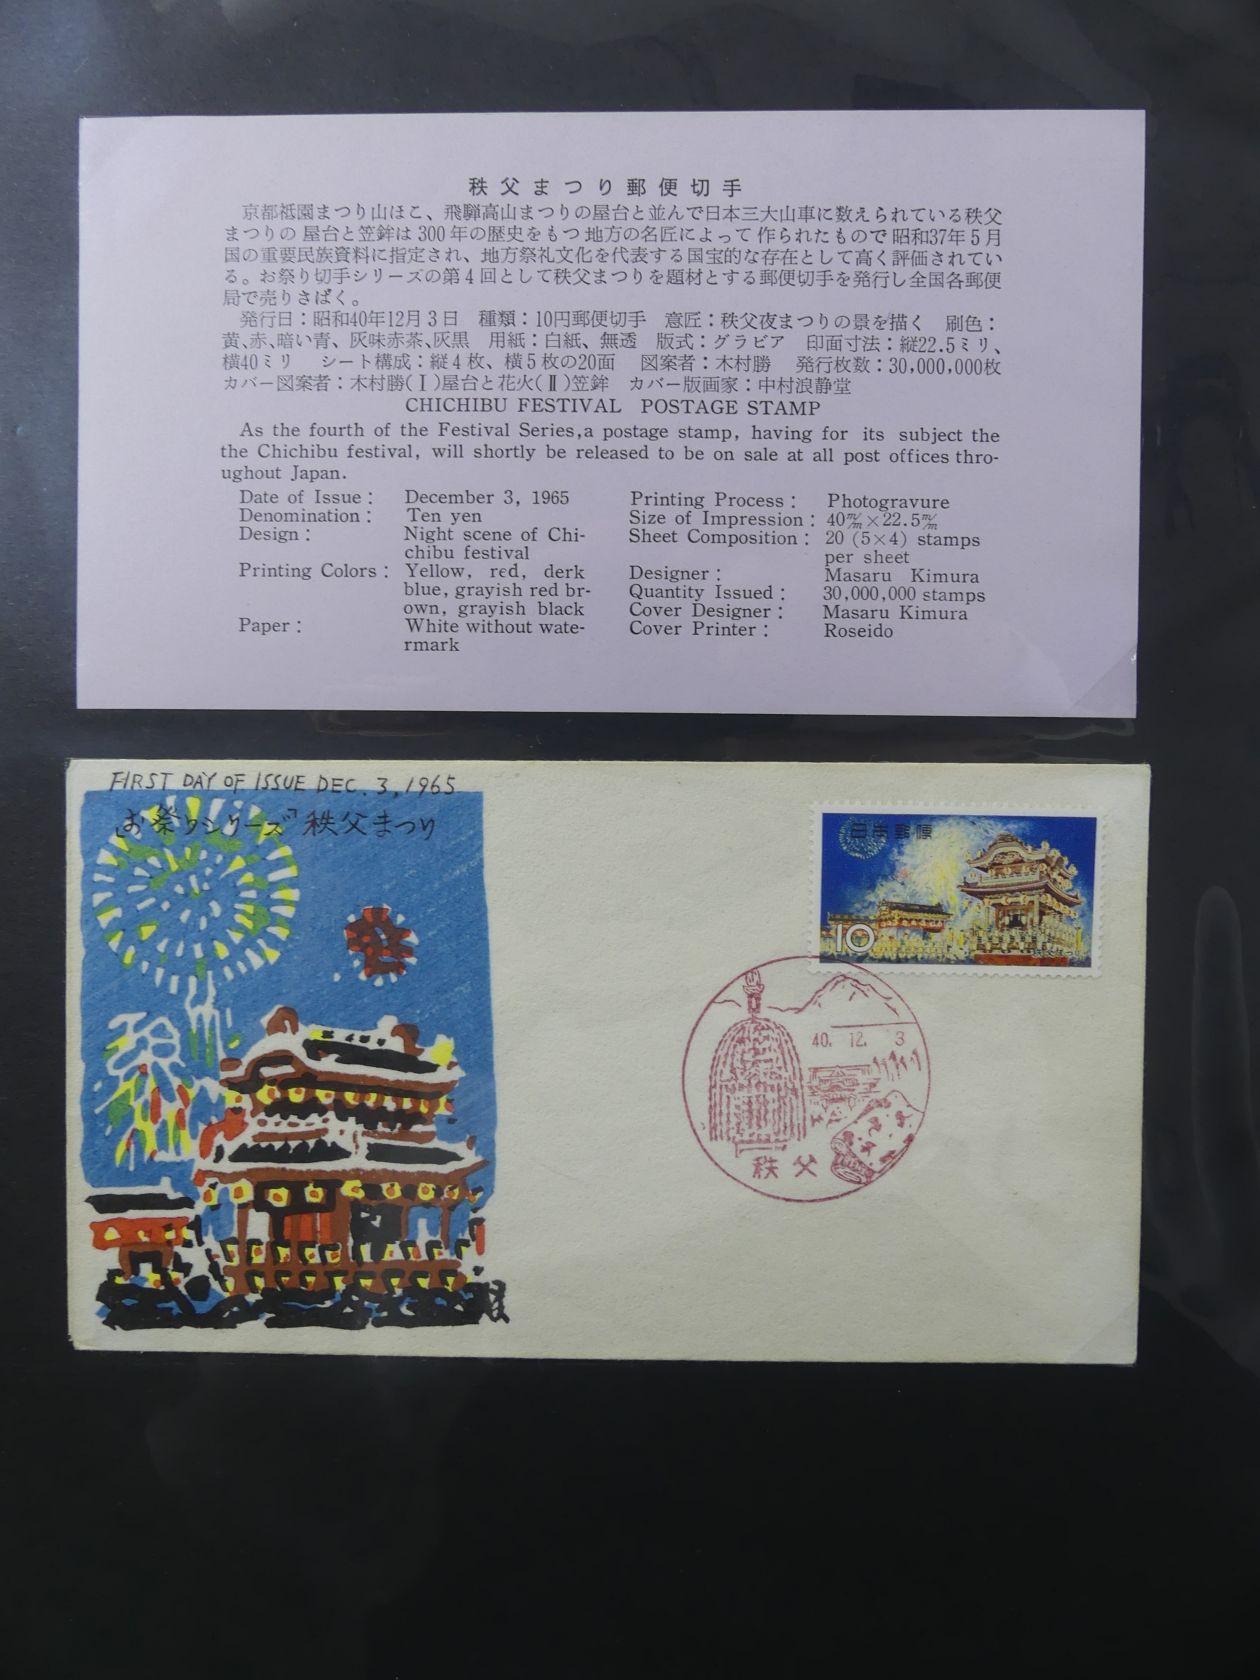 秩父まつり郵便切手
京都祗園まつり山ほこ、飛騨高山まつりの屋台と並んで日本三大山車に数えられている秩父
まつりの 屋台と笠鉾は 300 年の歴史をもつ 地方の名匠によって 作られたもので 昭和37年 5 月
国の重要民族資料に指定され、地方祭礼文化を代表する国宝的な存在として高く評価されてい
る。お祭り切手シリーズの第 4 回として秩父まつりを題材とする郵便切手を発行し全国各郵便
局で売りさばく。
発行日：昭和40年12月 3 日　種類：10円郵便切手　意匠：秩父夜まつりの景を描く　刷色：
黄、赤、暗い青、灰味赤茶、灰黒　用紙：白紙、無透　版式：グラビア　印面寸法：縦22.5ミリ、
横40ミリ　シート構成：縦 4 枚、横 5 枚の20面　図案者：木村勝　発行枚数：30,000,000枚
カバー図案者：木村勝(Ⅰ)屋台と花火(Ⅱ)笠鉾　カバー版画家：中村浪静堂
CHICHIBU FESTIVAL POSTAGE STAMP
As the fourth of the Festival Series,a postage stamp, having for its subject the
the Chichibu festival, will shortly be released to be on sale at all post offices thro-
ughout Japan.
Date of Issue : December 3, 1965 Printing Process : Photogravure
Denomination : Ten yen Size of Impression : 40m/m×22.5m/m
Design : Night scene of Chi- Sheet Composition : 20 (5×4) stamps
chibu festival per sheet
Printing Colors : Yellow, red, derk Designer : Masaru Kimura
blue, grayish red br- Quantity Issued : 30,000,000 stamps
own, grayish black Cover Designer : Masaru Kimura
Paper : White without wate- Cover Printer : Roseido
rmark
FIRST DAY OF ISSUE DEC. 3, 1965
「お祭りシリーズ」秩父まつり
日本郵便
10
秩父まつり
40. 12. 3
秩父